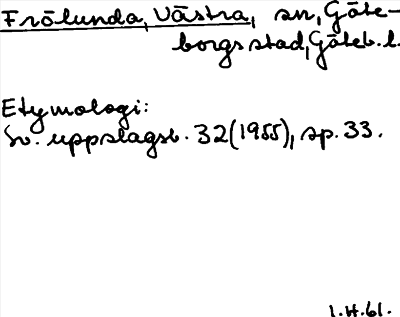 Frölunda, Västra, sn, Göte-
borgs stad, Göteb. l.
Etymologi:
Sv. uppslagsb. 32 (1955), sp. 33.
1.H.61.